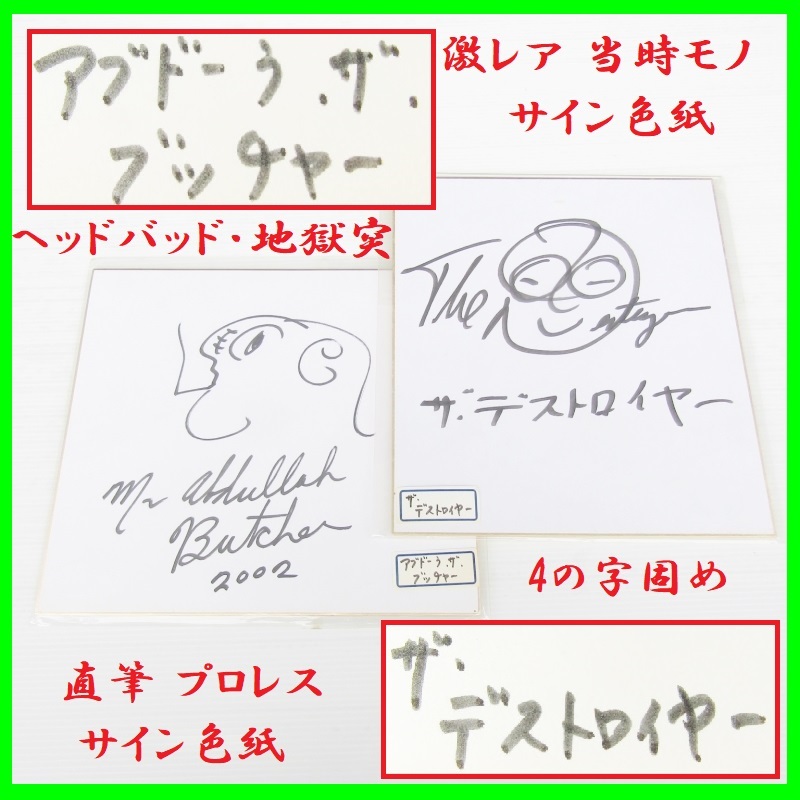 アブドーラ.ザ.
ブッチャー
激レア 当時モノ
サイン色紙
ヘッドバッド・地獄突
The Destroyer
ザ・デストロイヤー
Mr Abdullah
Butcher
2002
ザ・
デストロイヤー
アブドーラ.ザ.
ブッチャー
4の字固め
直筆 プロレス
サイン色紙
ザ・
デストロイヤー